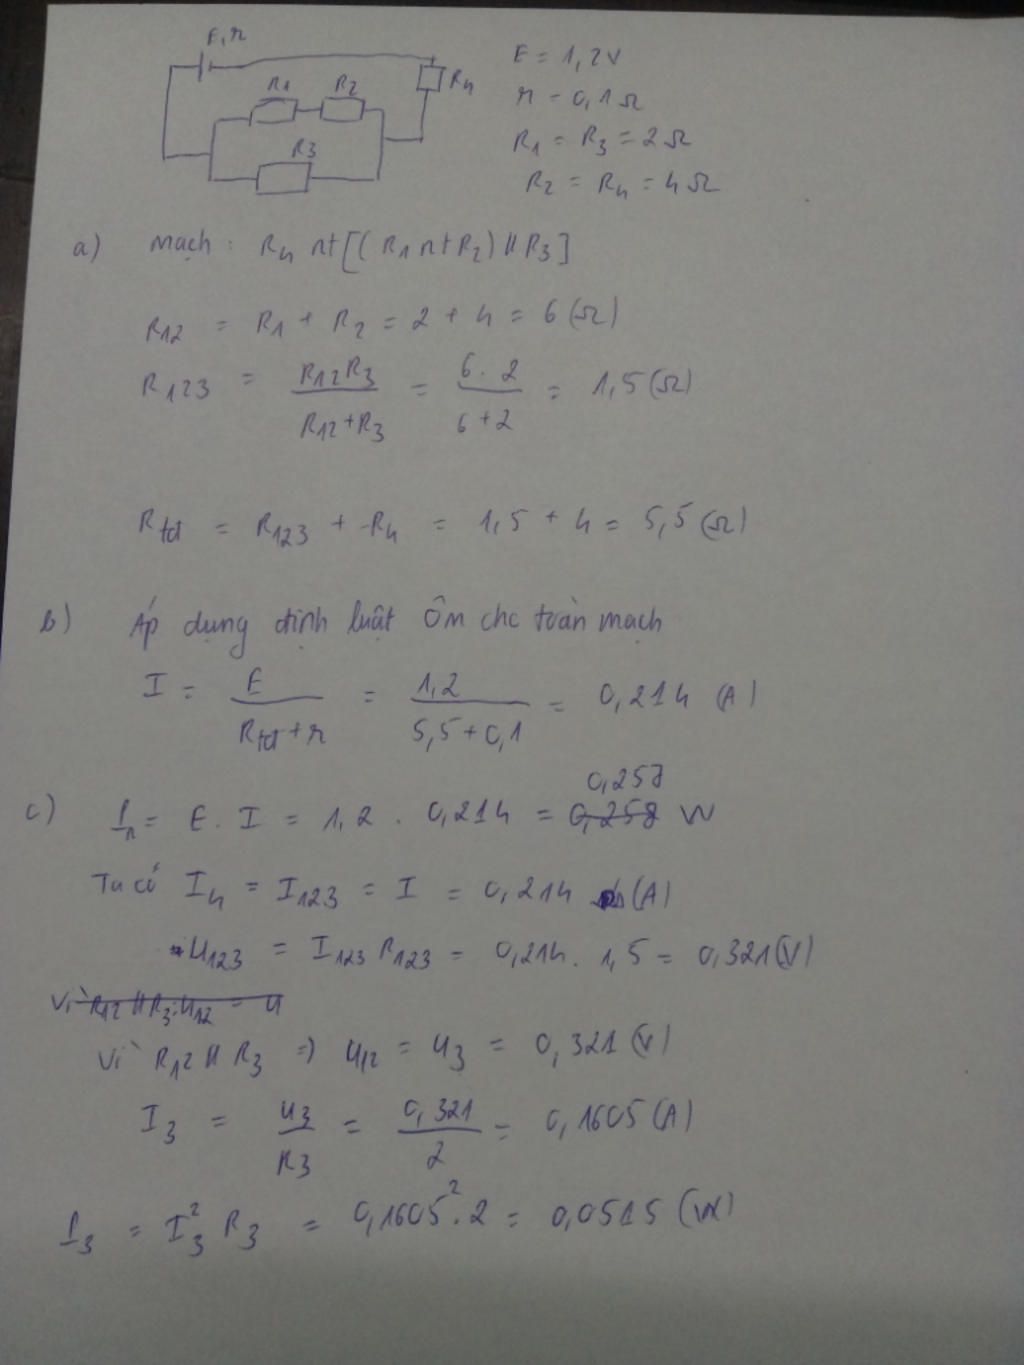 E, r
R1 R2
R4
R3
E = 1,2V
r = 0,1 Ω
R1 = R3 = 2Ω
R2 = R4 = 4Ω
a) Mạch : R4 nt [( R1 nt R2) // R3 ]
R12 = R1 + R2 = 2 + 4 = 6 (Ω)
R123 = R12R3 / R12+R3 = 6 . 2 / 6 + 2 = 1,5 (Ω)
Rtđ = R123 + R4 = 1,5 + 4 = 5,5 (Ω)
b) Áp dụng định luật Ôm cho toàn mạch
I = E / Rtđ + r = 1,2 / 5,5 + 0,1 = 0,214 (A)
0,257
c) Pn = E . I = 1,2 . 0,214 = 0,258 W
Ta có I4 = I123 = I = 0,214 (A)
U123 = I123 R123 = 0,214 . 1,5 = 0,321 (V)
Vì R12 // R3 : U12 = U
Vì R12 // R3 => U12 = U3 = 0,321 (V)
I3 = U3 / R3 = 0,321 / 2 = 0,1605 (A)
P3 = I3² R3 = 0,1605² . 2 = 0,0515 (W)